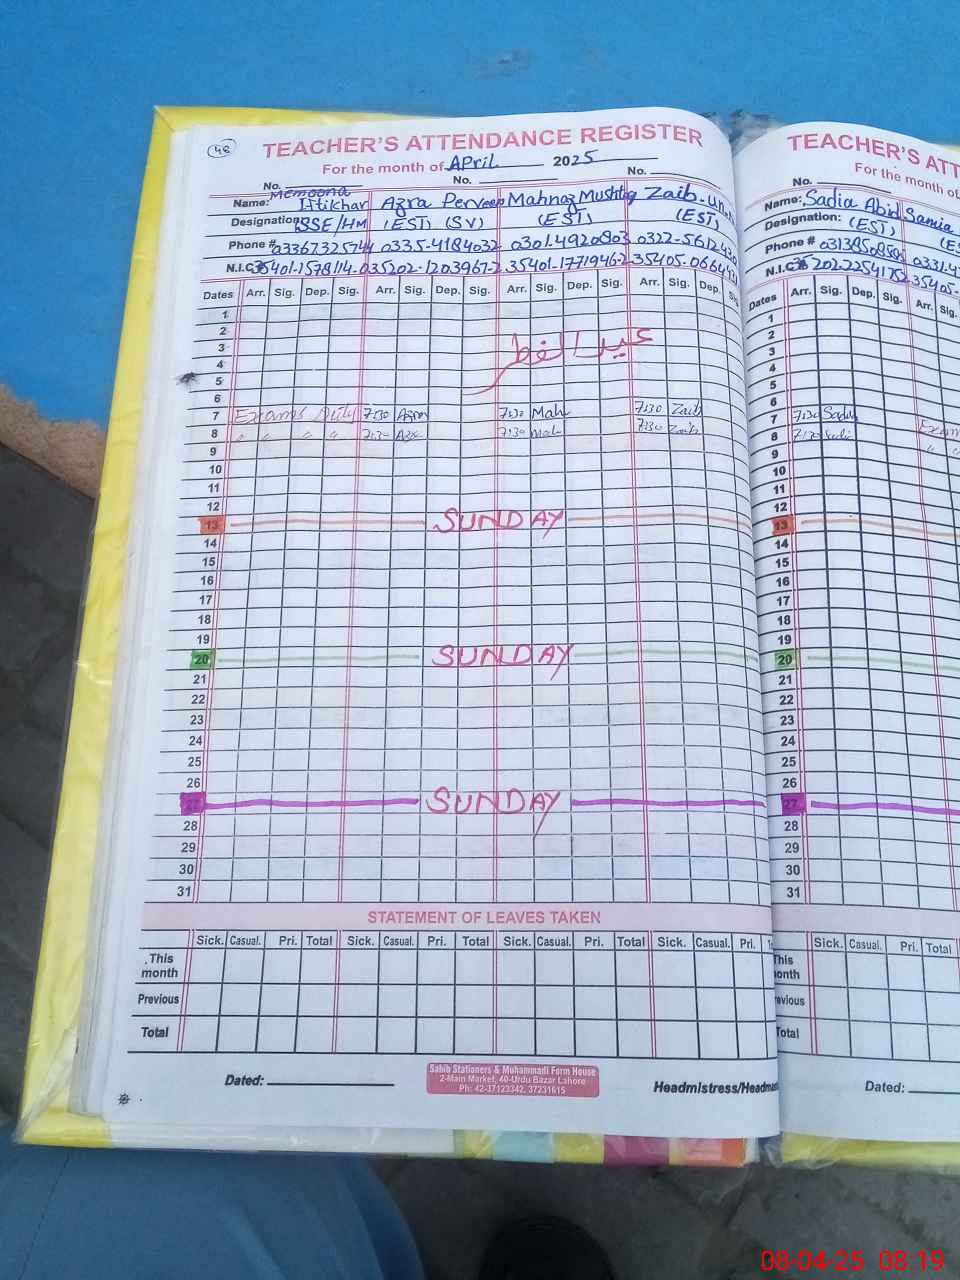 48
TEACHER'S ATTENDANCE REGISTER
For the month of April 2025
No. No. No.
Name: Memoona Iftikhar Azra Perveen Mahnaz Mushtaq Zaib-un-
Designation: SSE/HM (EST) (SV) (EST) (EST)
Phone # 03367325744 0335-4184032 0301-4920803 0322-5612430
N.I.C 35401-1578114-0 35202-1203967-2 35401-1771946-2 35405-0664
Dates Arr. Sig. Dep. Sig. Arr. Sig. Dep. Sig. Arr. Sig. Dep. Sig. Arr. Sig. Dep. Sig.
1
2
3
عید الفطر
4
5
6
7 Exams Duty 7:30 Azra 7:30 Mah 7:30 Zaib
8 " " " " 7:30 Azra 7:30 Mah 7:30 Zaib
9
10
11
12
13 SUNDAY
14
15
16
17
18
19
20 SUNDAY
21
22
23
24
25
26
27 SUNDAY
28
29
30
31
STATEMENT OF LEAVES TAKEN
Sick. Casual. Pri. Total Sick. Casual. Pri. Total Sick. Casual. Pri. Total Sick. Casual. Pri.
This month
Previous
Total
Dated:
Sahib Stationers & Muhammadi Form House
2-Main Market, 40-Urdu Bazar Lahore
Ph: 42-37123342, 37231615
Headmistress/Headma
TEACHER'S ATT
For the month of
No.
Name: Sadia Abid Samia
Designation: (EST) (ES
Phone # 03138508505 0331-4
N.I.C 35202-2254175-2 35405-
Dates Arr. Sig. Dep. Sig. Arr. Sig.
1
2
3
4
5
6
7 7:30 Sadia Exam
8 7:30 Sadia " "
9
10
11
12
13
14
15
16
17
18
19
20
21
22
23
24
25
26
27
28
29
30
31
Sick. Casual. Pri. Total
This
onth
evious
Total
Dated:
08-04-25 08:19